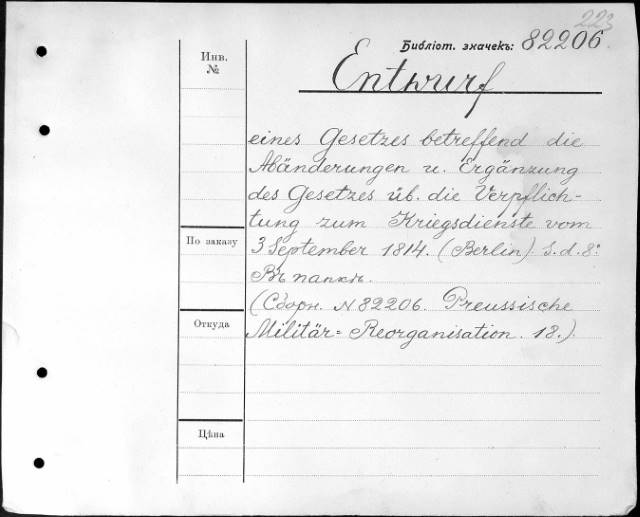 223
Библіот. значекъ: 82206.
Инв.
№
Entwurf
eines Gesetzes betreffend die
Abänderungen u. Ergänzung
des Gesetzes üb. die Verpflich-
tung zum Kriegsdienste vom
По заказу
3 September 1814. (Berlin). S.d. 8°.
Въ папкѣ.
(Сборн. N 82206. Preussische
Откуда
Militär= Reorganisation. 18.).
Цѣна